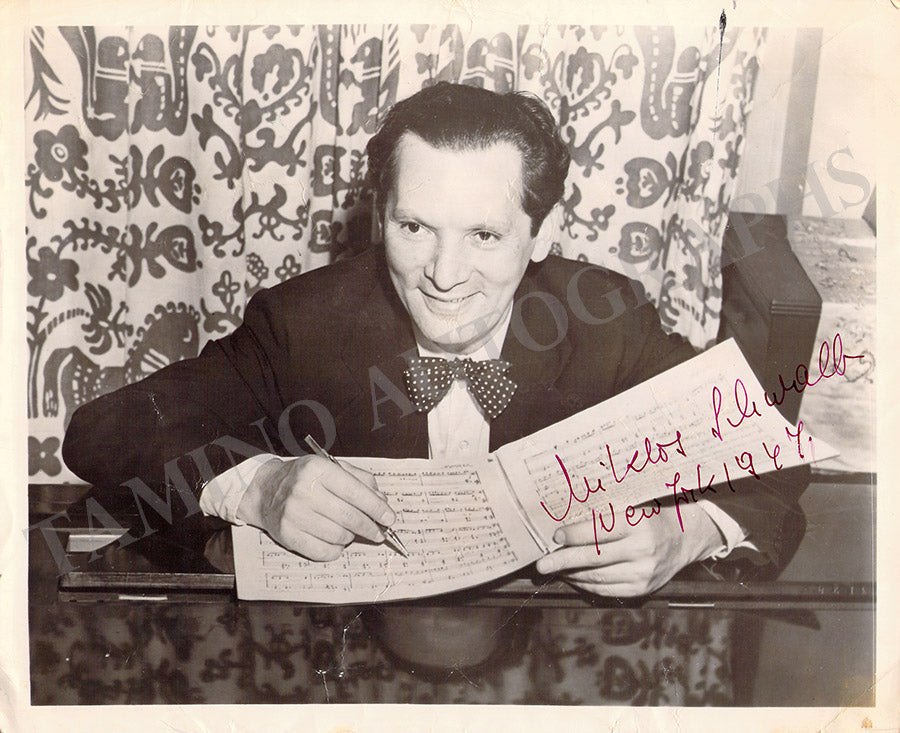 TAMINO AUTOGRAPHS
Miklos Schwalb
New York 1947.